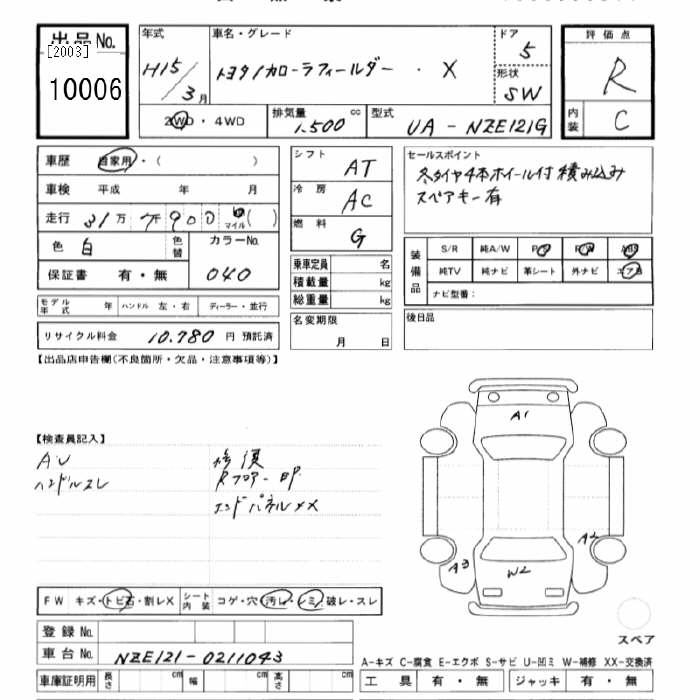 出品No.
[2003]
10006
年式
H15/3月
車名・グレード
トヨタ/カローラフィールダー ・ X
ドア
5
形状
SW
評価点
R
内装
C
2WD・4WD
排気量 cc
1.500
型式
UA-NZE121G
車歴 自家用・( )
車検 平成 年 月
走行 31万 7900 マイル( )
色 白 色替
カラーNo.
040
保証書 有・無
モデル年式 年 ハンドル 左・右 ディーラー・並行
リサイクル料金 10.780 円 預託済
シフト
AT
冷房
AC
燃料
G
乗車定員 名
積載量 kg
総重量 kg
名変期限
月 日
セールスポイント
冬タイヤ4本ホイール付 積み込み
スペアキー有
装備品
S/R 純A/W P/S P/W ABS
純TV 純ナビ 革シート 外ナビ エアB
ナビ型番:
後日品
【出品店申告欄(不良箇所・欠品・注意事項等)】
【検査員記入】
A・U
ハンドルスレ
修復
Rフロアー
エンドパネルXX
A1
A2
A3
W2
スペア
FW キズ・トビ石・割レX シート内装 コゲ・穴・汚レ・シミ・破レ・スレ
登録No.
車台No. NZE121-0211043
車庫証明用 長さ cm 幅 cm 高さ cm
A-キズ C-腐食 E-エクボ S-サビ U-凹ミ W-補修 XX-交換済
工具 有・無 ジャッキ 有・無